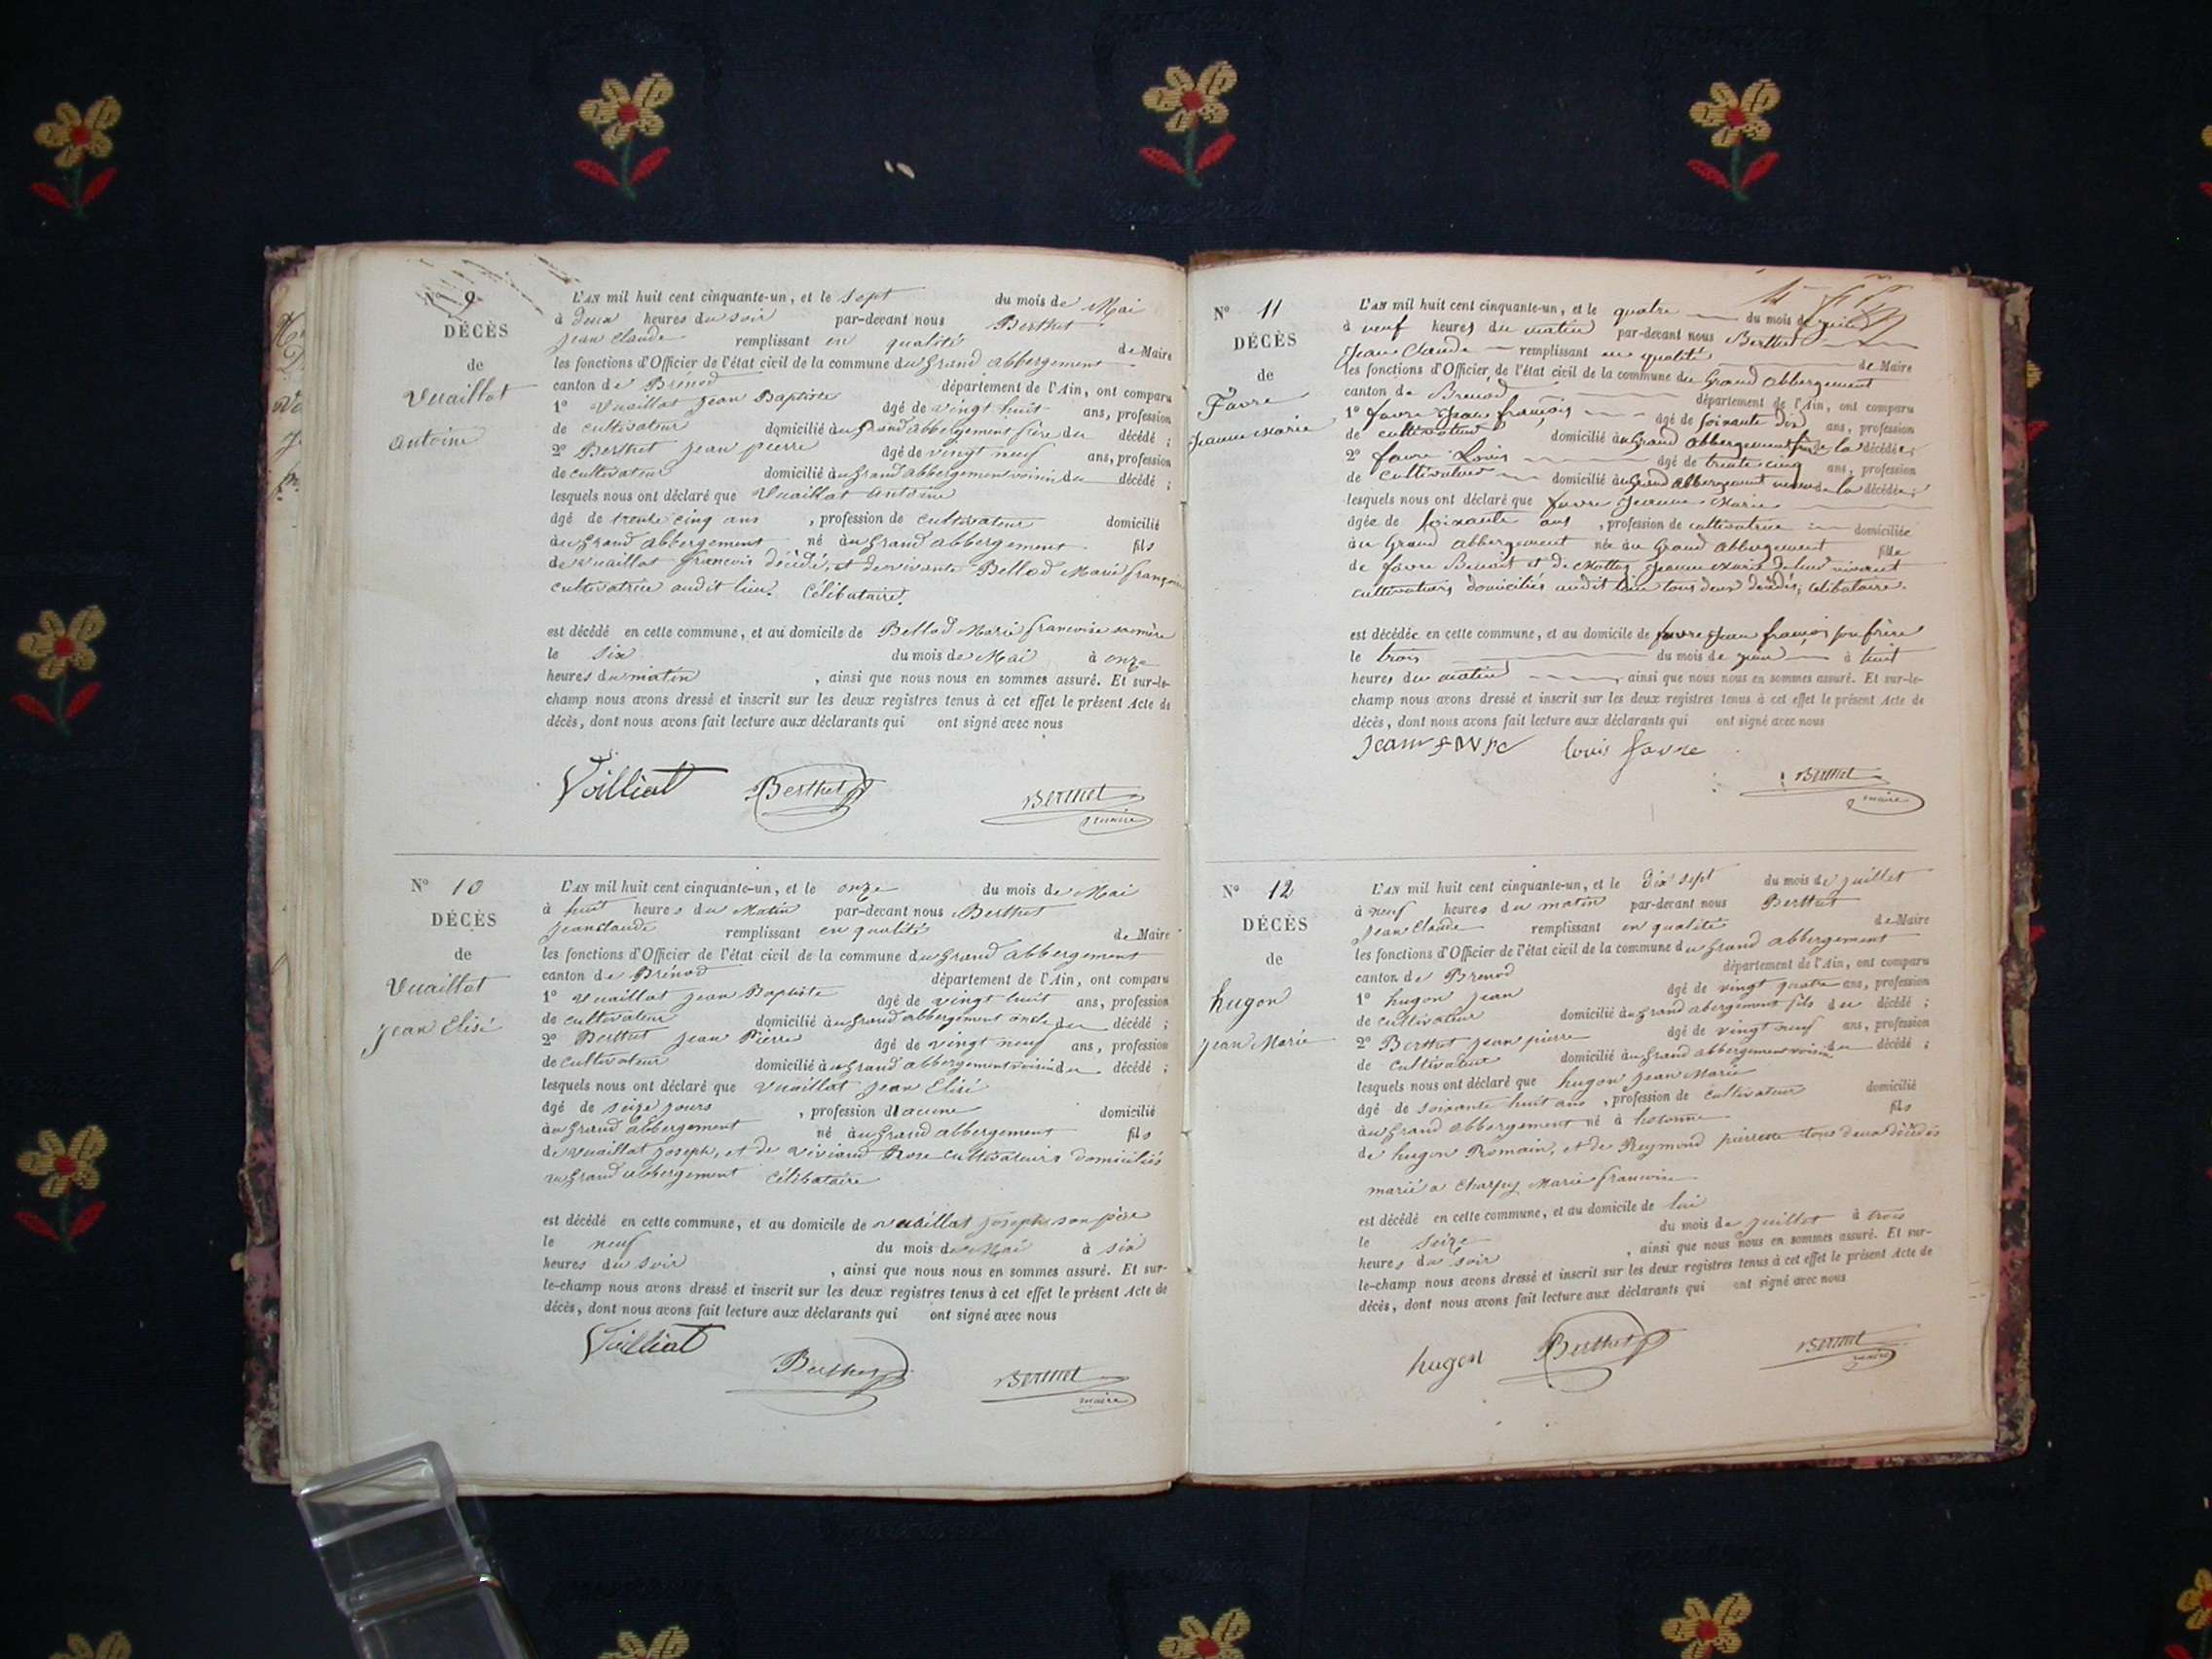 N° 9
DÉCÈS
de
Vuaillat
Antoine
L'AN mil huit cent cinquante-un, et le sept du mois de Mai
à deux heures du soir par-devant nous Berthet
jean Claude remplissant en qualité de Maire
les fonctions d'Officier de l'état civil de la commune du grand abbergement
canton de Brénod département de l'Ain, ont comparu
1° Vuaillat jean Baptiste âgé de vingt huit ans, profession
de cultivateur domicilié au grand abbergement frère du décédé ;
2° Berthet jean pierre âgé de vingt neuf ans, profession
de cultivateur domicilié au grand abbergement voisin du décédé ;
lesquels nous ont déclaré que Vuaillat antoine
âgé de trente cinq ans , profession de cultivateur domicilié
au grand abbergement né au grand abbergement fils
de vuaillat francois décédé, et de vivante Bellod Marie françoise
cultivatrice audit lieu. Célibataire.
est décédé en cette commune, et au domicile de Bellod Marie francoise sa mère
le six du mois de Mai à onze
heures du matin , ainsi que nous nous en sommes assuré. Et sur-le-
champ nous avons dressé et inscrit sur les deux registres tenus à cet effet le présent Acte de
décès, dont nous avons fait lecture aux déclarants qui ont signé avec nous
Voilliat Berthet Berthet
maire
N° 10
DÉCÈS
de
Vuaillat
jean Elisé
L'AN mil huit cent cinquante-un, et le onze du mois de Mai
à huit heures du Matin par-devant nous Berthet
jean claude remplissant en qualité de Maire
les fonctions d'Officier de l'état civil de la commune du grand abbergement
canton de Brénod département de l'Ain, ont comparu
1° Vuaillat jean Baptiste âgé de vingt huit ans, profession
de cultivateur domicilié au grand abbergement oncle du décédé ;
2° Berthet jean Pierre âgé de vingt neuf ans, profession
de cultivateur domicilié au grand abbergement voisin du décédé ;
lesquels nous ont déclaré que Vuaillat jean Elisé
âgé de seize jours , profession d'aucune domicilié
au grand abbergement né au grand abbergement fils
de vuaillat joseph, et de viviand Rose cultivateurs domiciliés
au grand abbergement célibataire
est décédé en cette commune, et au domicile de vuaillat joseph son père
le neuf du mois de Mai à six
heures du soir , ainsi que nous nous en sommes assuré. Et sur-
le-champ nous avons dressé et inscrit sur les deux registres tenus à cet effet le présent Acte de
décès, dont nous avons fait lecture aux déclarants qui ont signé avec nous
Voilliat Berthet Berthet
maire
N° 11
DÉCÈS
de
Favre
jeanne Marie
L'AN mil huit cent cinquante-un, et le quatre du mois de juin
à neuf heures du matin par-devant nous Berthet
Jean Claude remplissant en qualité de Maire
les fonctions d'Officier de l'état civil de la commune du Grand abbergement
canton de Brenod département de l'Ain, ont comparu
1° favre Jean françois âgé de soixante dix ans, profession
de cultivateur domicilié au Grand abbergement frère de la décédée ;
2° favre Louis âgé de trente cinq ans, profession
de cultivateur domicilié au Grand abbergement neveu de la décédée ;
lesquels nous ont déclaré que favre Jeanne Marie
âgée de soixante ans , profession de cultivatrice domiciliée
au Grand abbergement née au Grand abbergement fille
de favre Benoit et de Jeanne Marie de leur vivant
cultivateurs domiciliés audit lieu tous deux décédés; célibataire.
est décédée en cette commune, et au domicile de favre Jean françois son frère
le trois du mois de juin à huit
heures du matin , ainsi que nous nous en sommes assuré. Et sur-le-
champ nous avons dressé et inscrit sur les deux registres tenus à cet effet le présent Acte de
décès, dont nous avons fait lecture aux déclarants qui ont signé avec nous
Jean favre Louis favre
Berthet
maire
N° 12
DÉCÈS
de
hugon
jean Marie
L'AN mil huit cent cinquante-un, et le dix sept du mois de juillet
à neuf heures du matin par-devant nous Berthet
jean Claude remplissant en qualité de Maire
les fonctions d'Officier de l'état civil de la commune du grand abbergement
canton de Brenod département de l'Ain, ont comparu
1° hugon jean âgé de vingt quatre ans, profession
de cultivateur domicilié au grand abergement fils du décédé ;
2° Berthet jean pierre âgé de vingt neuf ans, profession
de cultivateur domicilié au grand abbergement voisin du décédé ;
lesquels nous ont déclaré que hugon jean Marie
âgé de soixante huit ans , profession de cultivateur domicilié
au grand abbergement né à hotonne fils
de hugon Romain, et de Reymond pierrette tous deux décédés
marié a Charpy Marie francoise
est décédé en cette commune, et au domicile de lui
le seize du mois de juillet à trois
heures du soir , ainsi que nous nous en sommes assuré. Et sur-
le-champ nous avons dressé et inscrit sur les deux registres tenus à cet effet le présent Acte de
décès, dont nous avons fait lecture aux déclarants qui ont signé avec nous
hugon Berthet Berthet
maire